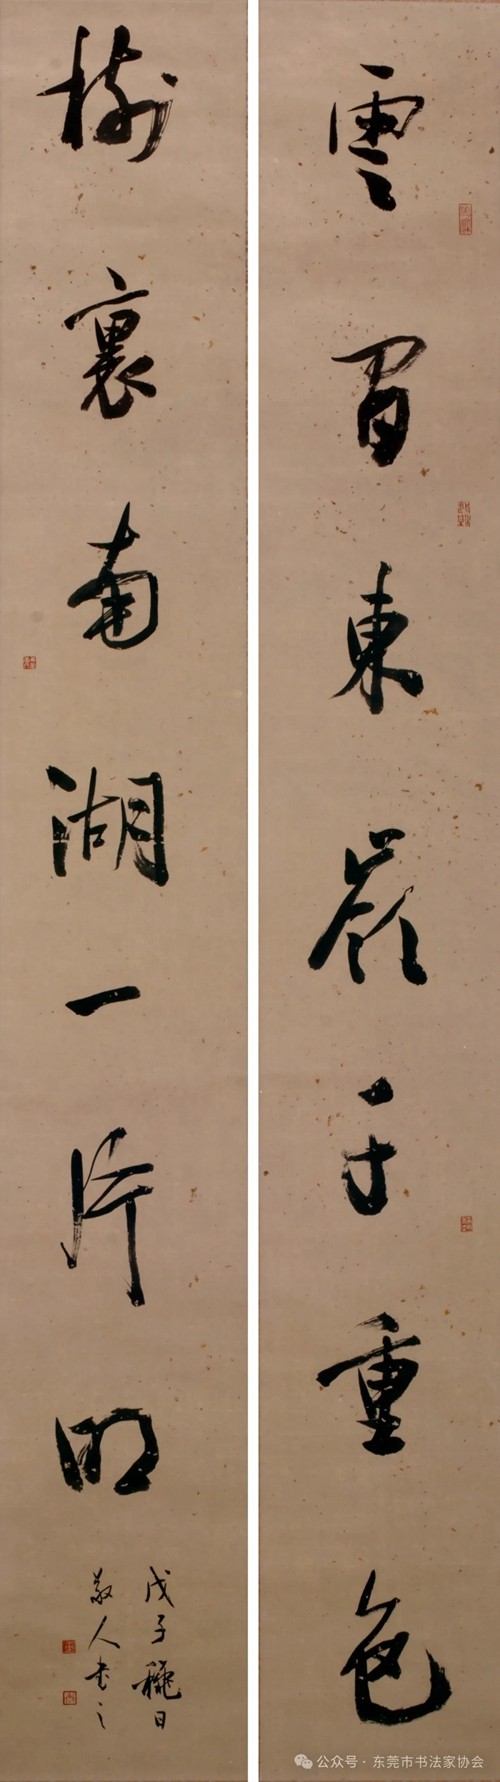 雲間東嶺千重色
樹裏南湖一片明
戊子穐日
人書之
公众号·东莞市书法家协会